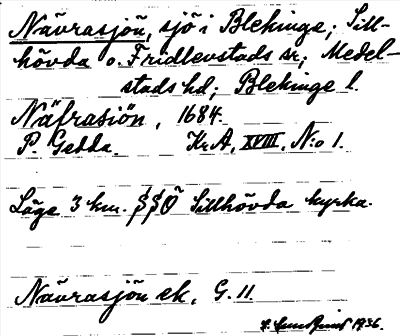 Nävrasjön, sjö i Blekinge; Sill-
hövda o. Fridlevstads sr, Medel-
stads hd; Blekinge l.
Näfrasiön, 1684.
P. Gedda. Kr.A, XVIII, N:o 1.
Läge 3 km. SSÖ Sillhövda kyrka.
Nävrasjön ek, G. 11.
1936.